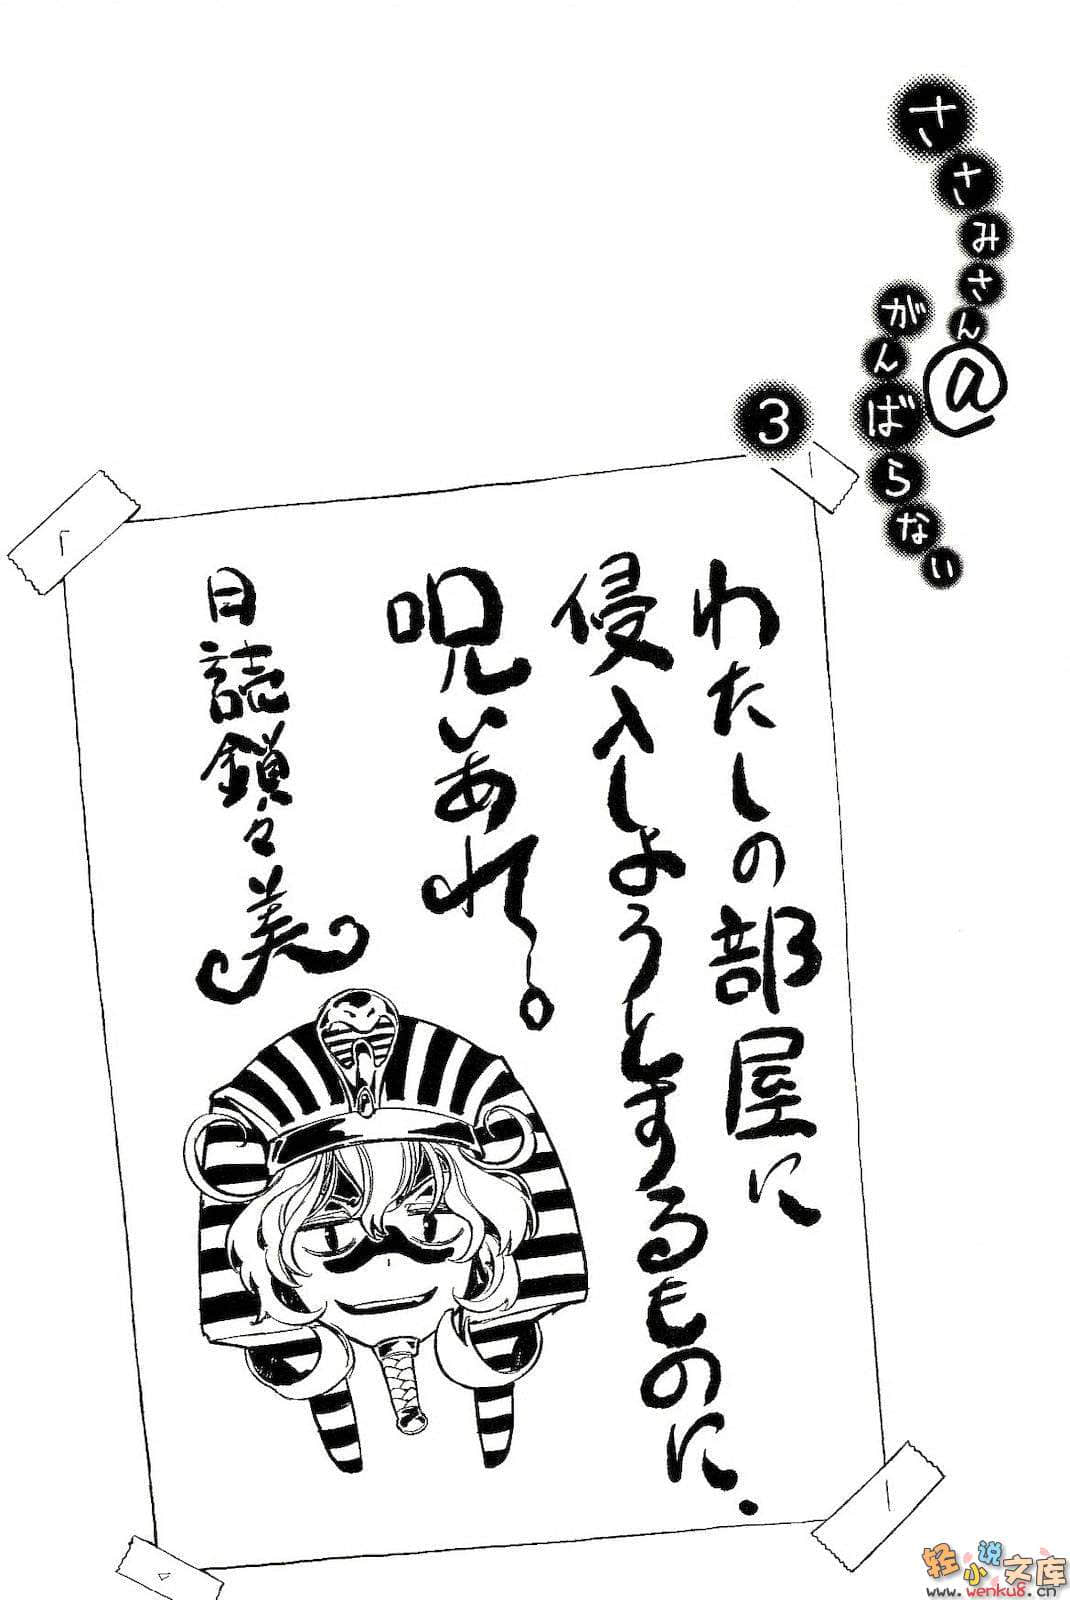 ささみさん@
がんばらない
3
わたしの部屋に
侵入しようとするものに、
呪いあれ。
日誌鎖々美
轻小说文库
www.wenku8.cn